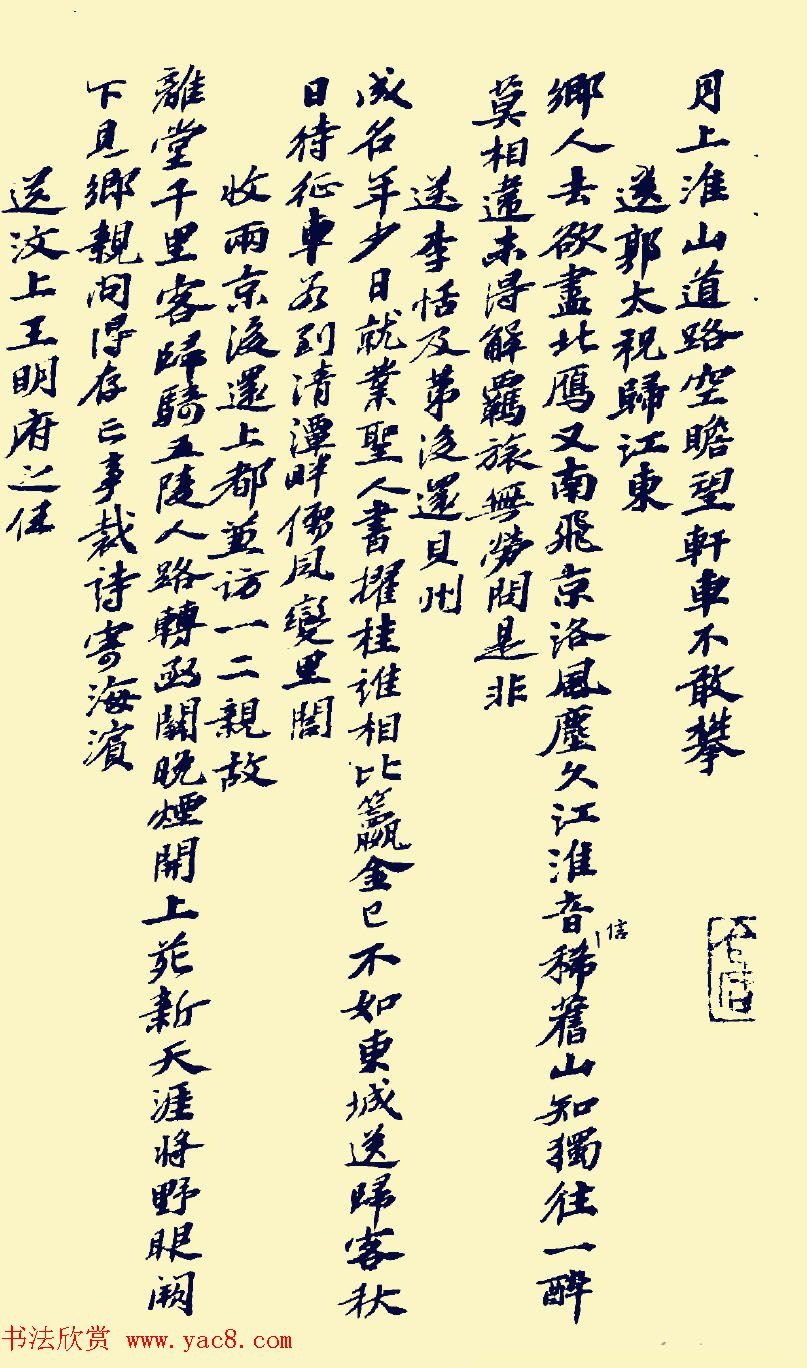 月上淮山道路空瞻望軒車不敢攀
送郭太祝歸江東
鄉人去欲盡北鴈又南飛京洛風塵久江淮音信稀舊山知獨往一醉
莫相違未得解羈旅無勞問是非
送李恬及第後還貝州
成名年少日就業聖人書擢桂誰相比籯金已不如東城送歸客秋
日待征車若到清潭畔儒風變里閭
收兩京後還上都並访一二親故
離堂千里客歸騎五陵人路轉函關晚煙開上苑新天涯将野眼阙
下見鄉親问得存亡事裁詩寄海濱
送汶上王明府之任
书法欣赏 www.yac8.com